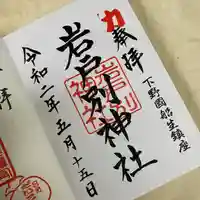 奉拝
下野國船生鎮座
岩戸別神社
令和二年五月十五日
拝